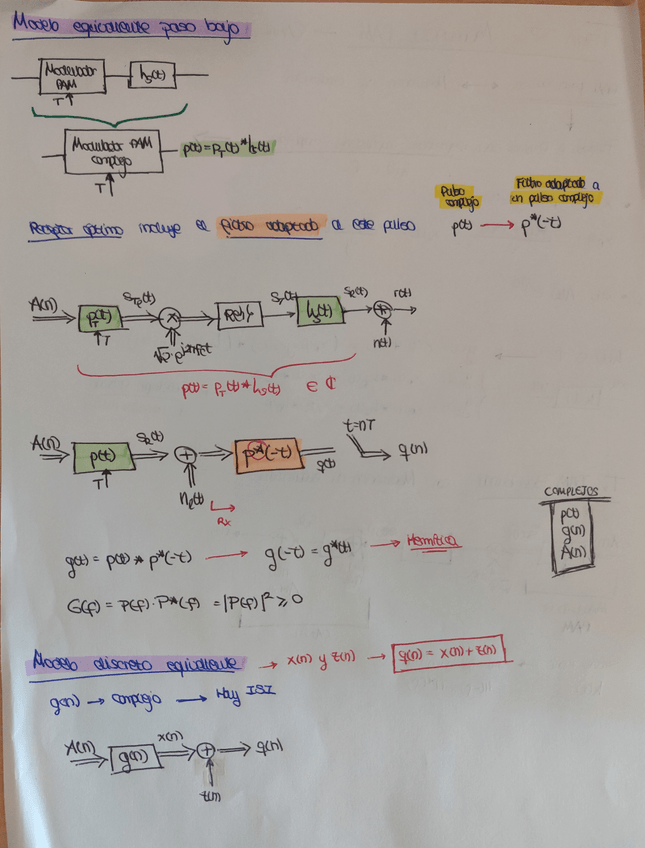 Modelo equivalente paso bajo
Modulador PAM
hs(t)
T
Modulador PAM complejo
p(t) = PT(t) * hs(t)
T
Pulso complejo
Filtro adaptado a un pulso complejo
Receptor óptimo incluye el filtro adaptado a este pulso
p(t) → p*(-t)
A(n)
PT(t)
T
STp(t)
x
√2·e^j2πfct
Re{·}
ST(t)
hs(t)
SR(t)
r(t)
n(t)
p(t) = PT(t) * hs(t) ∈ ℂ
A(n)
p(t)
T
SR(t)
+
nl(t)
Rx
p*(-t)
q(t)
t=nT
q(n)
COMPLEJOS
p(t)
g(n)
A(n)
g(t) = p(t) * p*(-t) → g(-t) = g*(t) → Hermítica
G(f) = P(f)·P*(f) = |P(f)|² ≥ 0
Modelo discreto equivalente → x(n) y z(n) → q(n) = x(n) + z(n)
g(n) → complejo → Hay ISI
A(n)
g(n)
x(n)
+
q(n)
z(n)